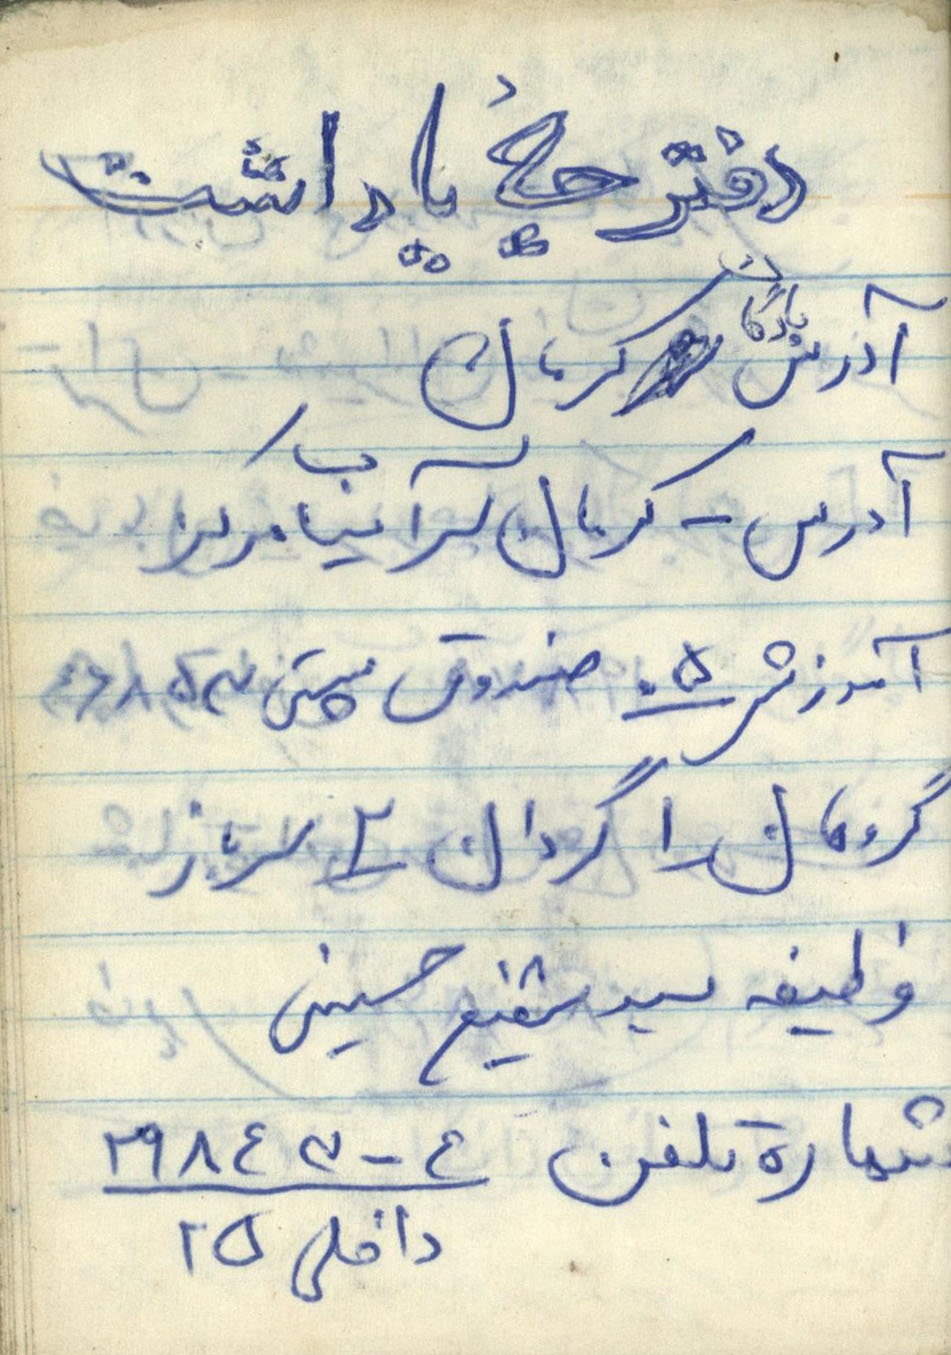 دفترچهٔ یاداشت
آدرس پادگان کرمان
آدرس – کرمان سرآسیاب مرکز
آموزش ۰۵ صندوق پستی
گروهان ۱ گردان ۲ سرباز
وظیفه سید شفیع حسینی
شمارهٔ تلفن ۲۹۸٤۳-٤
داخلی ۲۵